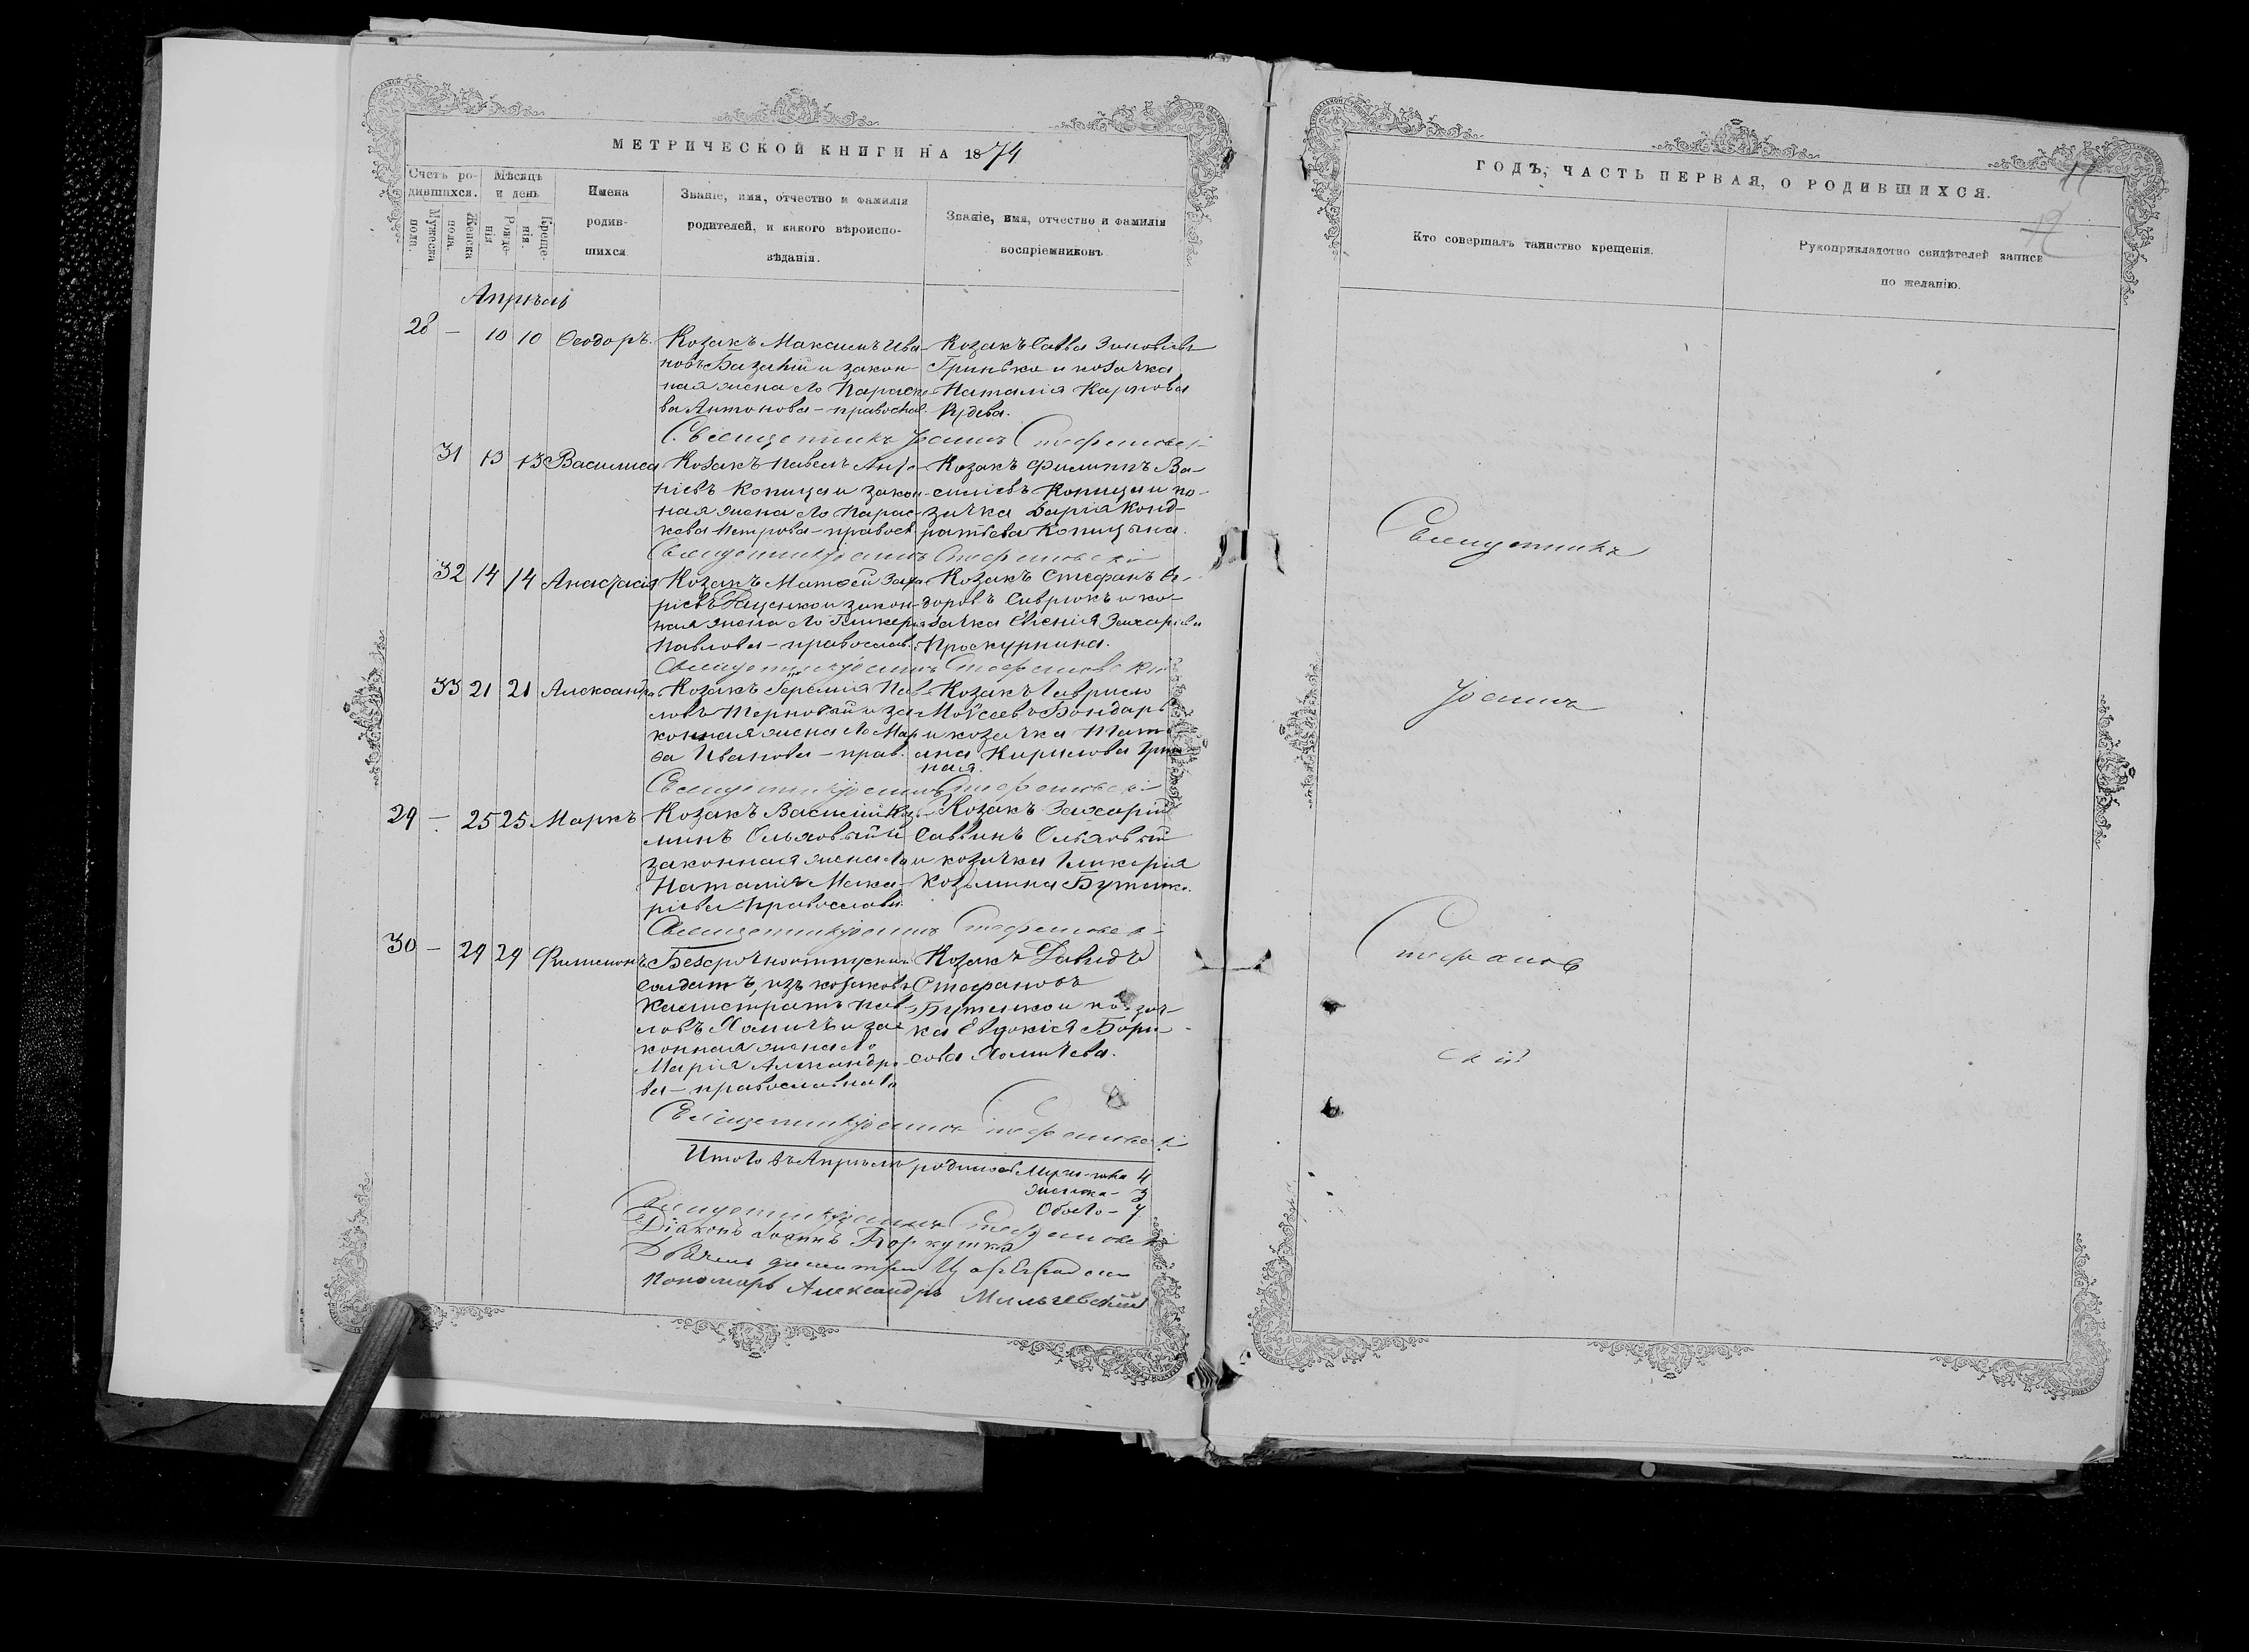 МЕТРИЧЕСКОЙ КНИГИ НА 1874
Счетъ ро-
дившихся.
Мѣсяцъ
и день
Мужеска
пола.
Женска
пола.
Рожде-
нія
Креще-
нія.
Имена
родив-
шихся
Званіе, имя, отчество и фамилія
родителей, и какого вѣроиспо-
вѣданія.
Званіе, имя, отчество и фамилія
воспріемниковъ
Апрѣль
28 — 10 10 Ѳеодоръ.
Козакъ Максимъ Ива-
новъ Базавій и закон-
ная жена его Параске
ва Антонова — православ.
Козакъ Савва Зиновіевъ
Гринько и козачка
Наталія Карпова
Священникъ Іоаннъ Стефановскі
31 13 13 Василиса
Козакъ Павелъ
ніевъ Копица и закон-
ная жена его Парас-
кева Петрова — правосл
Козакъ Филиппъ Ва-
силіевъ Копица и ко-
зачка Дарія Конд-
ратьева Копицына.
Священникъ Іоаннъ Стефановскі
32 14 14 Анастасія
Козакъ Матѳей Заха
ріевъ Яценко и закон-
ная жена его Гликерія
Павлова — православ.
Козакъ Стефанъ
доровъ Саврюкъ и ко-
зачка Евгенія Захаріева
Проскурнина.
Священникъ Іоаннъ Стефановскі
33 21 21 Александра
Козакъ Іеремія Пав-
ловъ Терновый и за-
конная жена его Мар
ѳа Иванова — прав.
Козакъ Гаврило
Моѵсеевъ Бондарь
и козачка Тать
яна Кирилова
ная.
Священникъ Іоаннъ Стефановскі
29 — 25 25 Маркъ
Козакъ Василій Козь-
минъ Ольховый и
законная жена его
Наталія Мака-
ріева православн.
Козакъ Захарій
Саввинъ Ольховый
и козачка Гликерія
Козьмина Бутенко.
Священникъ Іоаннъ Стефановскі
30 — 29 29 Филимонъ
Безсрочноотпускный
солдатъ, изъ козаковъ
Калистратъ Пав-
ловъ Хомичъ и за-
конная жена его
Марія Александро
ва — православнаго
Козакъ Давидъ
Стефановъ
Бутенко и козач-
ка Евдокія Бори-
сова Хомичева.
Священникъ Іоаннъ Стефановскі
Итого въ Апрѣлѣ родилось Мужеска 4
Женска — 3
Обоего — 7
Священникъ Іоаннъ Стефановскі
Діаконъ Іоаннъ
Димитрій
Пономарь Александръ Мильчевскій
ГОДЪ, ЧАСТЬ ПЕРВАЯ, О РОДИВШИХСЯ.
11
12
Кто совершалъ таинство крещенія.
Рукоприкладство свидѣтелей записи
по желанію.
Священникъ
Іоаннъ
Стефанов
скій